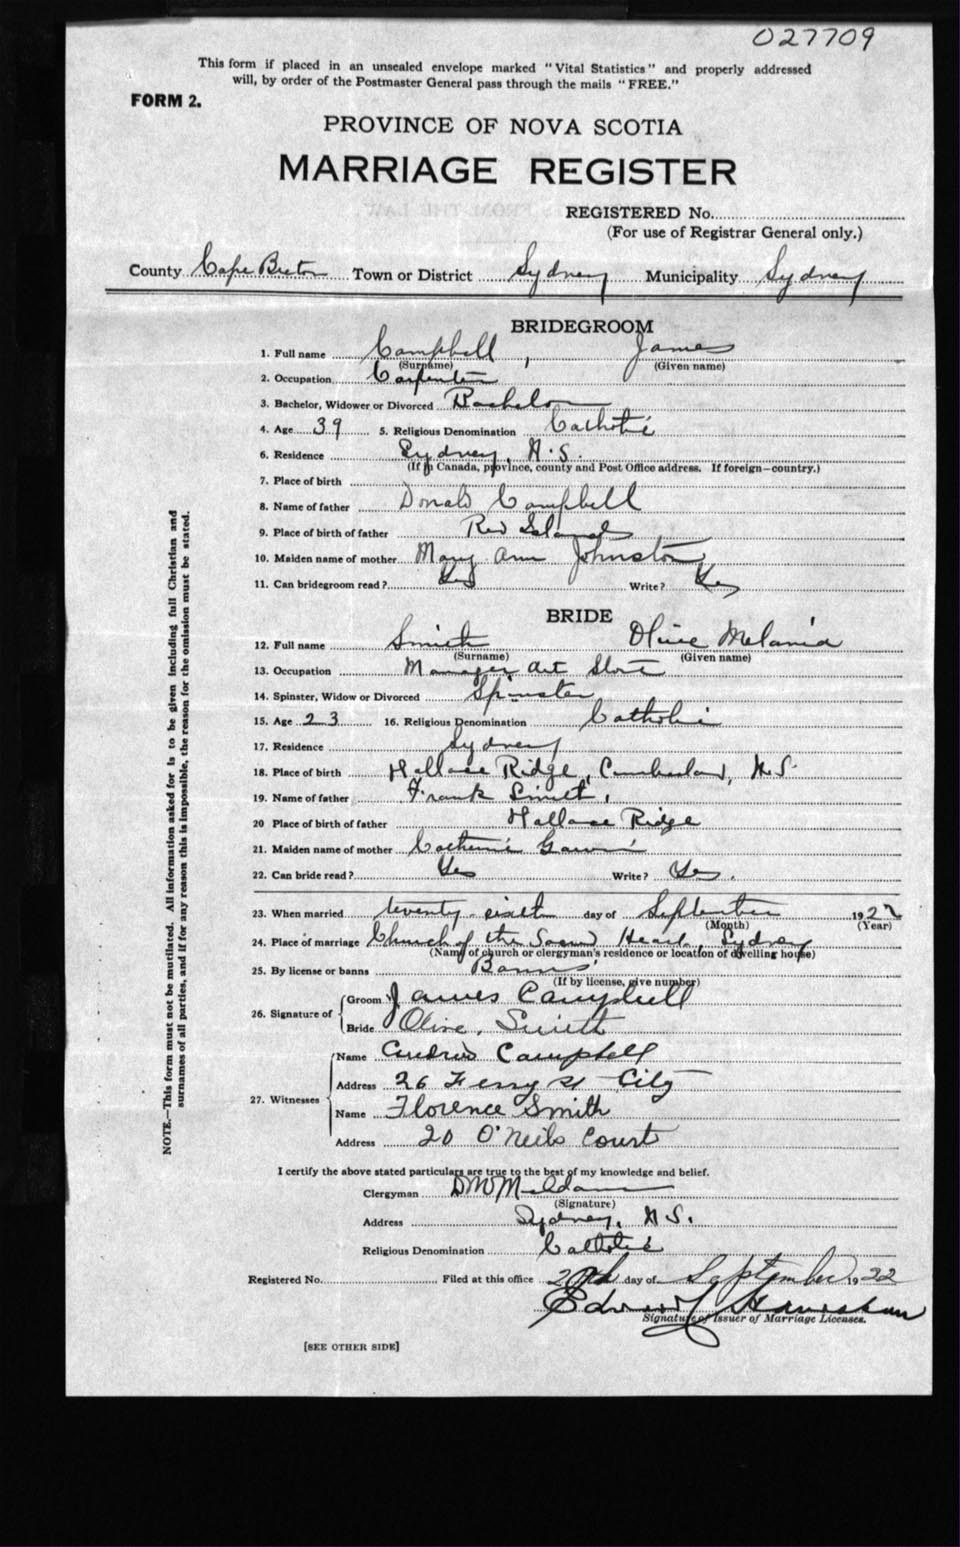 027709
This form if placed in an unsealed envelope marked "Vital Statistics" and properly addressed
will, by order of the Postmaster General pass through the mails "FREE."
FORM 2.
PROVINCE OF NOVA SCOTIA
MARRIAGE REGISTER
REGISTERED No.
(For use of Registrar General only.)
County Cape Breton Town or District Sydney Municipality Sydney
BRIDEGROOM
1. Full name Campbell, James
(Surname) (Given name)
2. Occupation Carpenter
3. Bachelor, Widower or Divorced Bachelor
4. Age 39 5. Religious Denomination Catholic
6. Residence Sydney, N.S.
(If in Canada, province, county and Post Office address. If foreign—country.)
7. Place of birth
8. Name of father Donald Campbell
9. Place of birth of father Red Islands
10. Maiden name of mother Mary Ann Johnston
11. Can bridegroom read? Yes Write? Yes
BRIDE
12. Full name Smith Olive Melania
(Surname) (Given name)
13. Occupation Manager Art Store
14. Spinster, Widow or Divorced Spinster
15. Age 23 16. Religious Denomination Catholic
17. Residence Sydney
18. Place of birth Wallace Ridge, Cumberland, N.S.
19. Name of father Frank Smith,
20 Place of birth of father Wallace Ridge
21. Maiden name of mother Catherine
22. Can bride read? Yes Write? Yes.
23. When married twenty-sixth day of September 1922
(Month) (Year)
24. Place of marriage Church of the Sacred Heart, Sydney
(Name of church or clergyman's residence or location of dwelling house)
25. By license or banns Banns
(If by license, give number)
26. Signature of Groom James Campbell
Bride Olive. Smith
27. Witnesses
Name Campbell
Address 26 Ferry St City
Name Florence Smith
Address 20 O'Neils Court
I certify the above stated particulars are true to the best of my knowledge and belief.
Clergyman
(Signature)
Address Sydney, N.S.
Religious Denomination Catholic
Registered No. Filed at this office day of September 1922
Signature of Issuer of Marriage Licenses.
[SEE OTHER SIDE]
NOTE.—This form must not be mutilated. All information asked for is to be given including full Christian and
surnames of all parties, and if for any reason this is impossible, the reason for the omission must be stated.